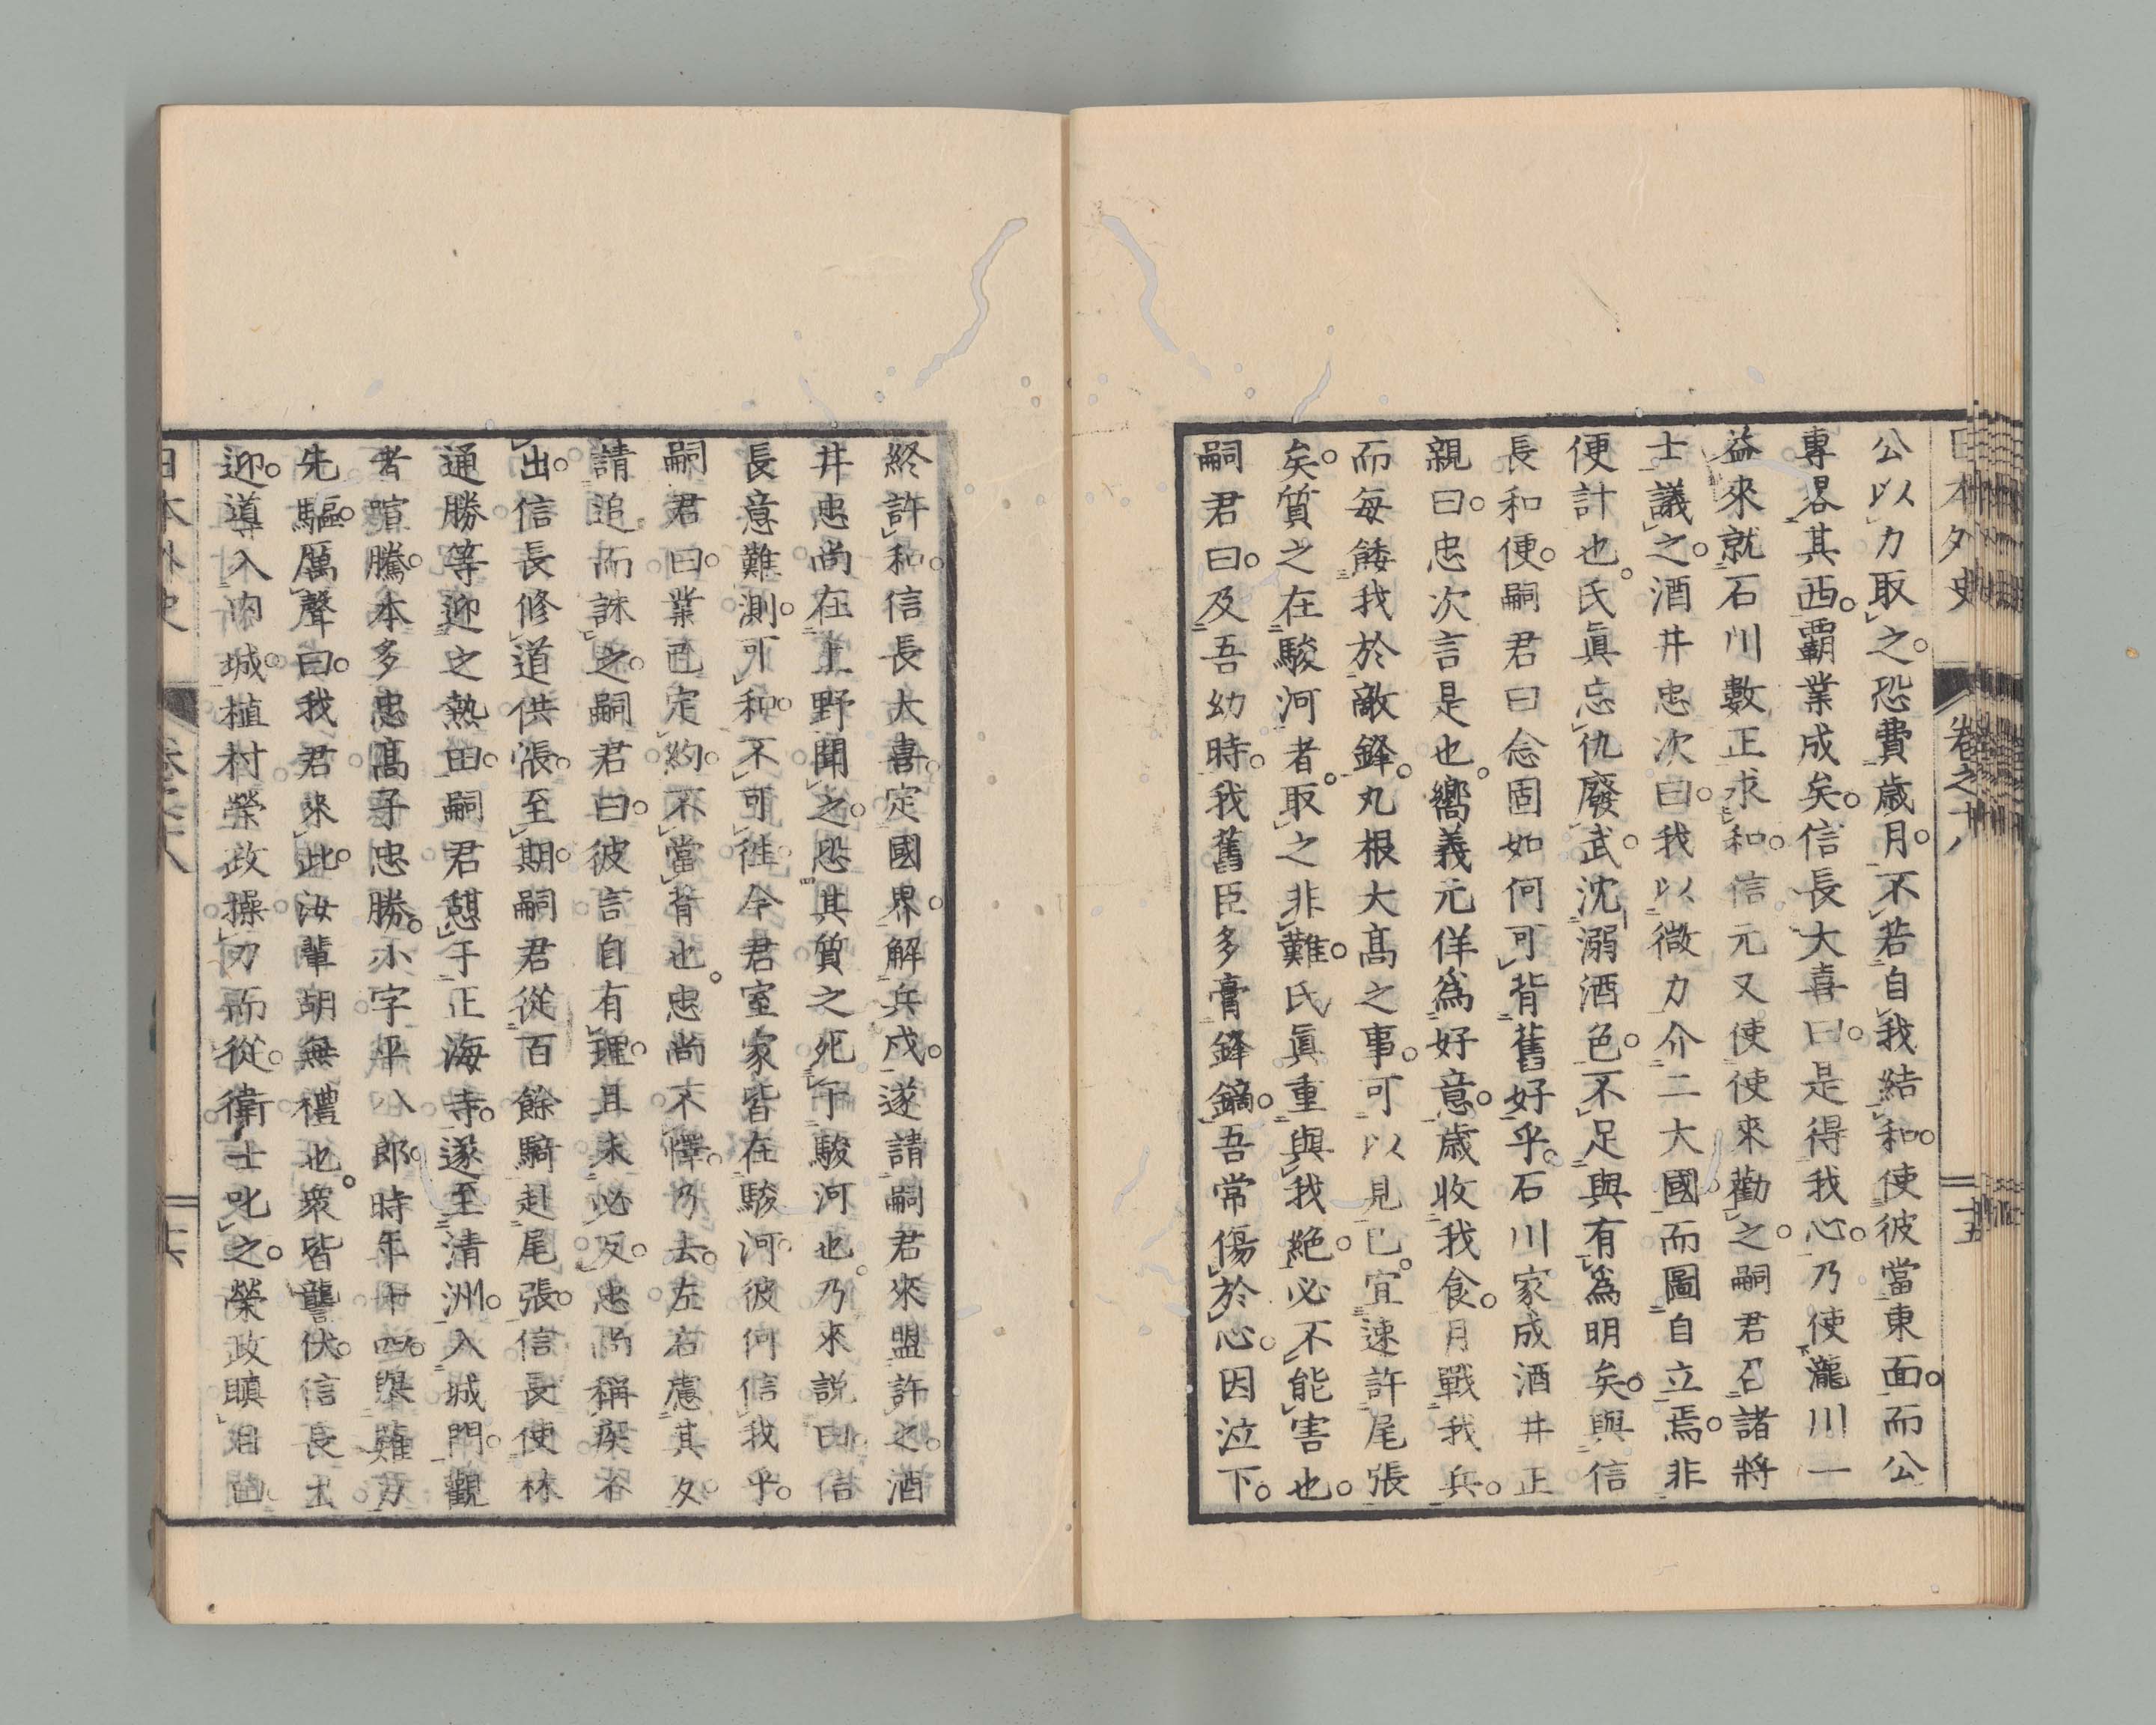 日本外史 卷之十八 十五
公以力取之。恐費歳月。不若自我結和。使彼當東面。而公
專畧其西。覇業成矣。信長大喜曰。是得我心。乃使瀧川一
益來就石川數正求和。信元又使使來勸之。嗣君召諸將
士議之。酒井忠次曰。我以微力介二大國。而圖自立焉。非
便計也。氏眞忘仇廢武。沈溺酒色。不足與有爲明矣。與信
長和便。嗣君曰念固如何可背舊好乎。石川家成酒井正
親曰。忠次言是也。嚮義元佯爲好意。歳收我食。月戰我兵。
而毎餧我於敵鋒。丸根大髙之事。可以見已。宜速許尾張
矣。質之在駿河者。取之非難。氏眞重與我絶。必不能害也。
嗣君曰。及吾幼時。我舊臣多膏鋒鏑。吾常傷於心。因泣下。
終許和。信長大喜。定國界。解兵戍。遂請嗣君來盟。許之。酒
井忠尚在上野聞之。恐其質之死下駿河也。乃來説曰。信
長意難測。可和。不可徃。今君室家皆在駿河。彼何信我乎。
嗣君曰。業已定約。不當背也。忠尚不懌。乃去。左右慮其叛。
請追而誅之。嗣君曰。彼言自有理。且未必反。忠尚稱疾不
出。信長修道供張。至期。嗣君從百餘騎赴尾張。信長使林
通勝等迎之熱田。嗣君憇于正海寺。遂至清洲。入城門。觀
者喧騰。本多忠髙子忠勝。小字平八郎。時年十四。與薙刀
先驅。厲聲曰。我君來此。汝輩胡無禮也。衆皆讋伏。信長出
迎。導入内城。植村榮政操刀而從。衛士叱之。榮政瞋目曰。
日本外史 卷之十八 十六